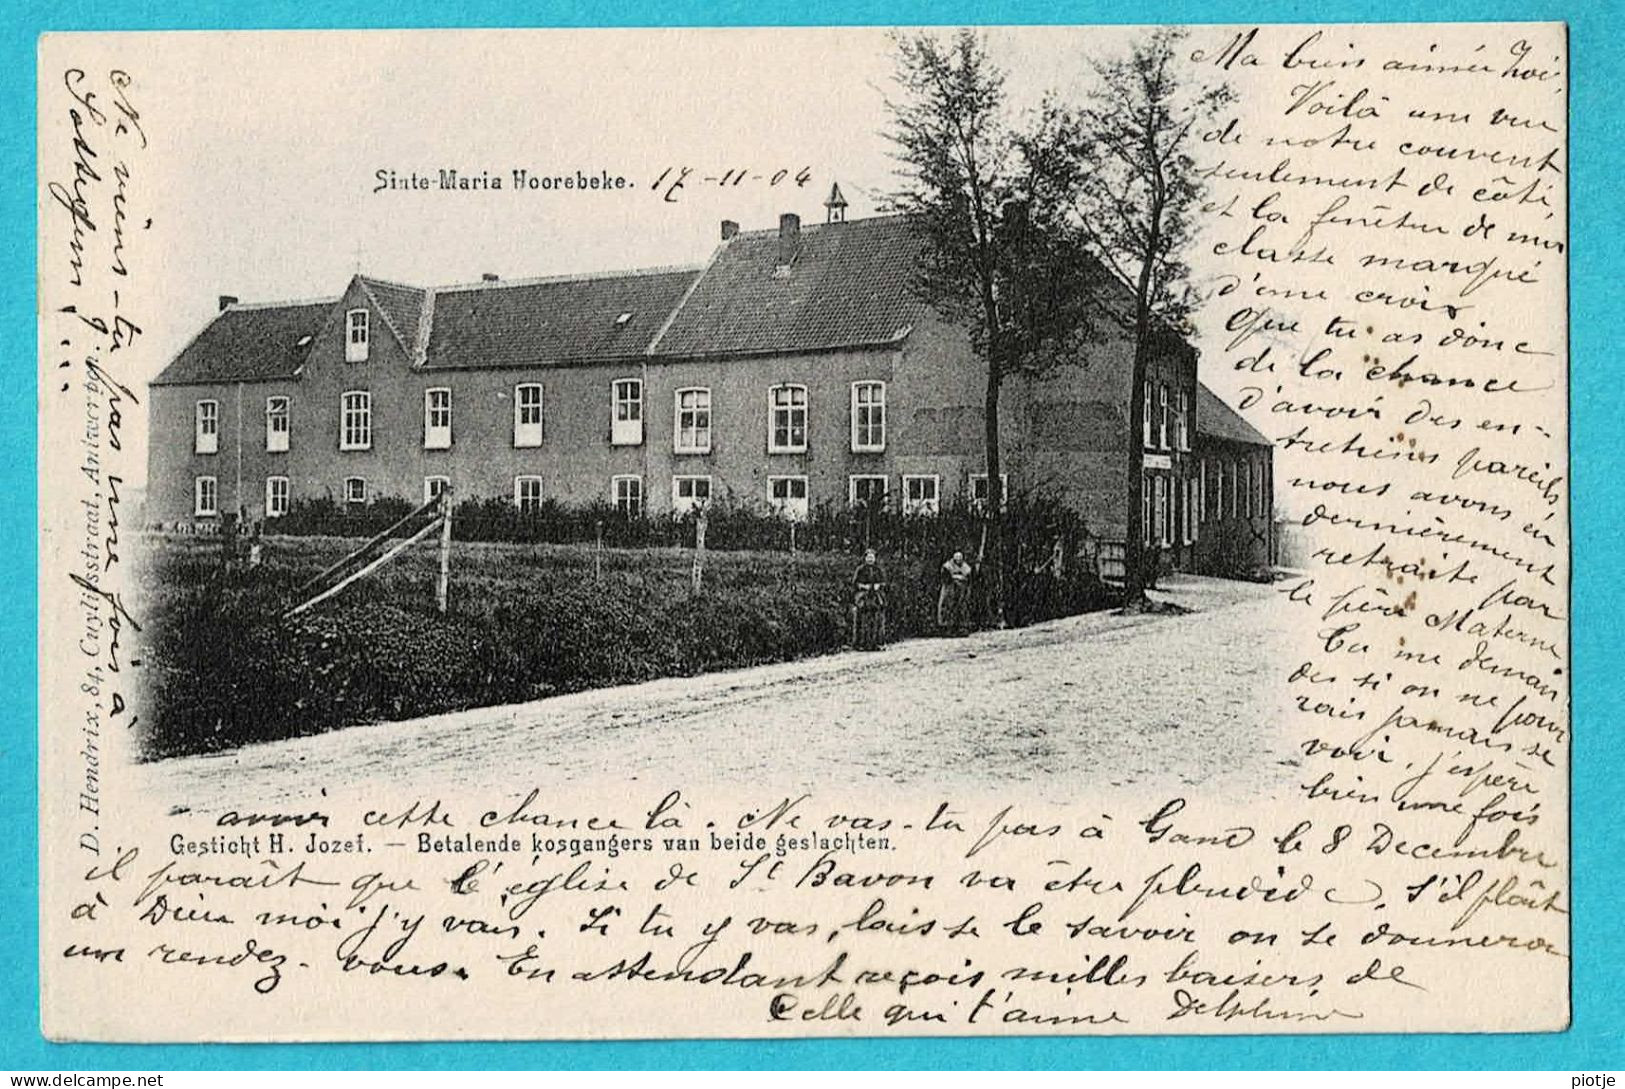 Sinte-Maria Hoorebeke. 17-11-04
Ma bien aimée Zoé,
Voilà une vue
de notre couvent
seulement de côté,
et la fenêtre de ma
classe marqué
d'une croix
Que tu as donc
de la chance
d'avoir des en-
tretiens pareils,
nous avons eu
dernièrement
retraite par
le père Materne
Tu me deman
des si on ne pour
rais jamais se
voir, j'espère
bien une fois
avoir cette chance là. Ne vas-tu pas à Gand le 8 Decembre
Gesticht H. Jozef. — Betalende kosgangers van beide geslachten.
il paraît que l'église de St Bavon va être splendide. S'il plaît
à Dieu moi j'y vais. Si tu y vas, laisse le savoir on se donnera
un rendez-vous. En attendant reçois milles baisers de
Celle qui t'aime Delphine
Ne viens-tu pas une fois à
Sottegem!...
D. Hendrix, 84, Cuylitsstraat, Antwerpen.
piotje